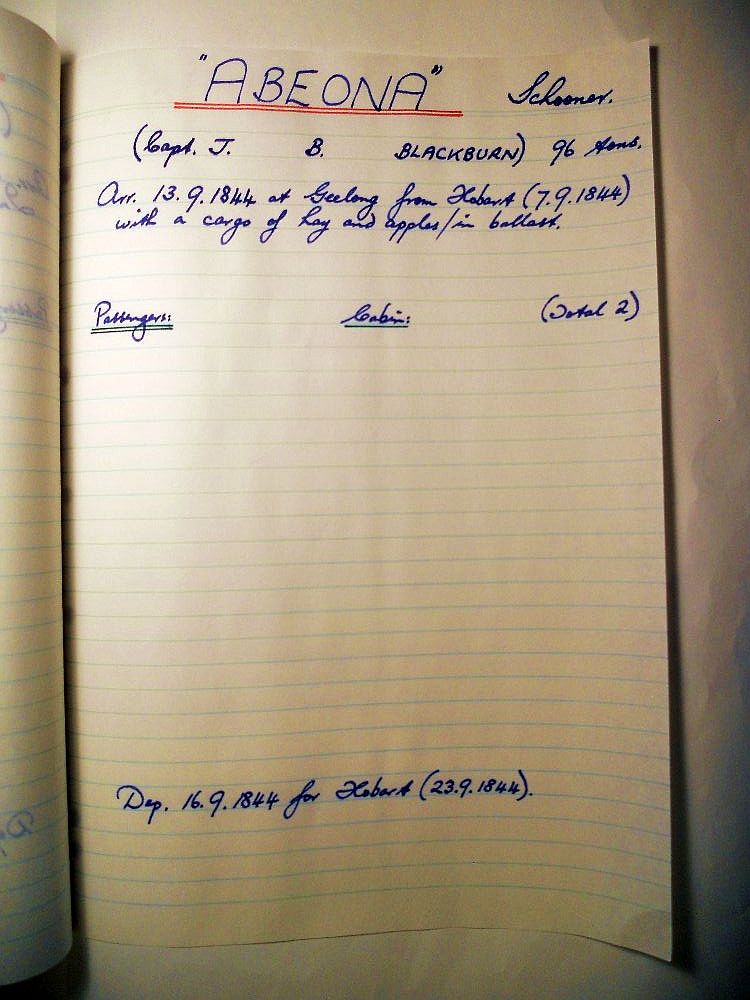 "ABEONA" Schooner.
(Capt. J. B. BLACKBURN) 96 tons.
Arr. 13.9.1844 at Geelong from Hobart (7.9.1844)
with a cargo of hay and apples/in ballast.
Passengers: Cabin: (Total 2)
Dep. 16.9.1844 for Hobart (23.9.1844).